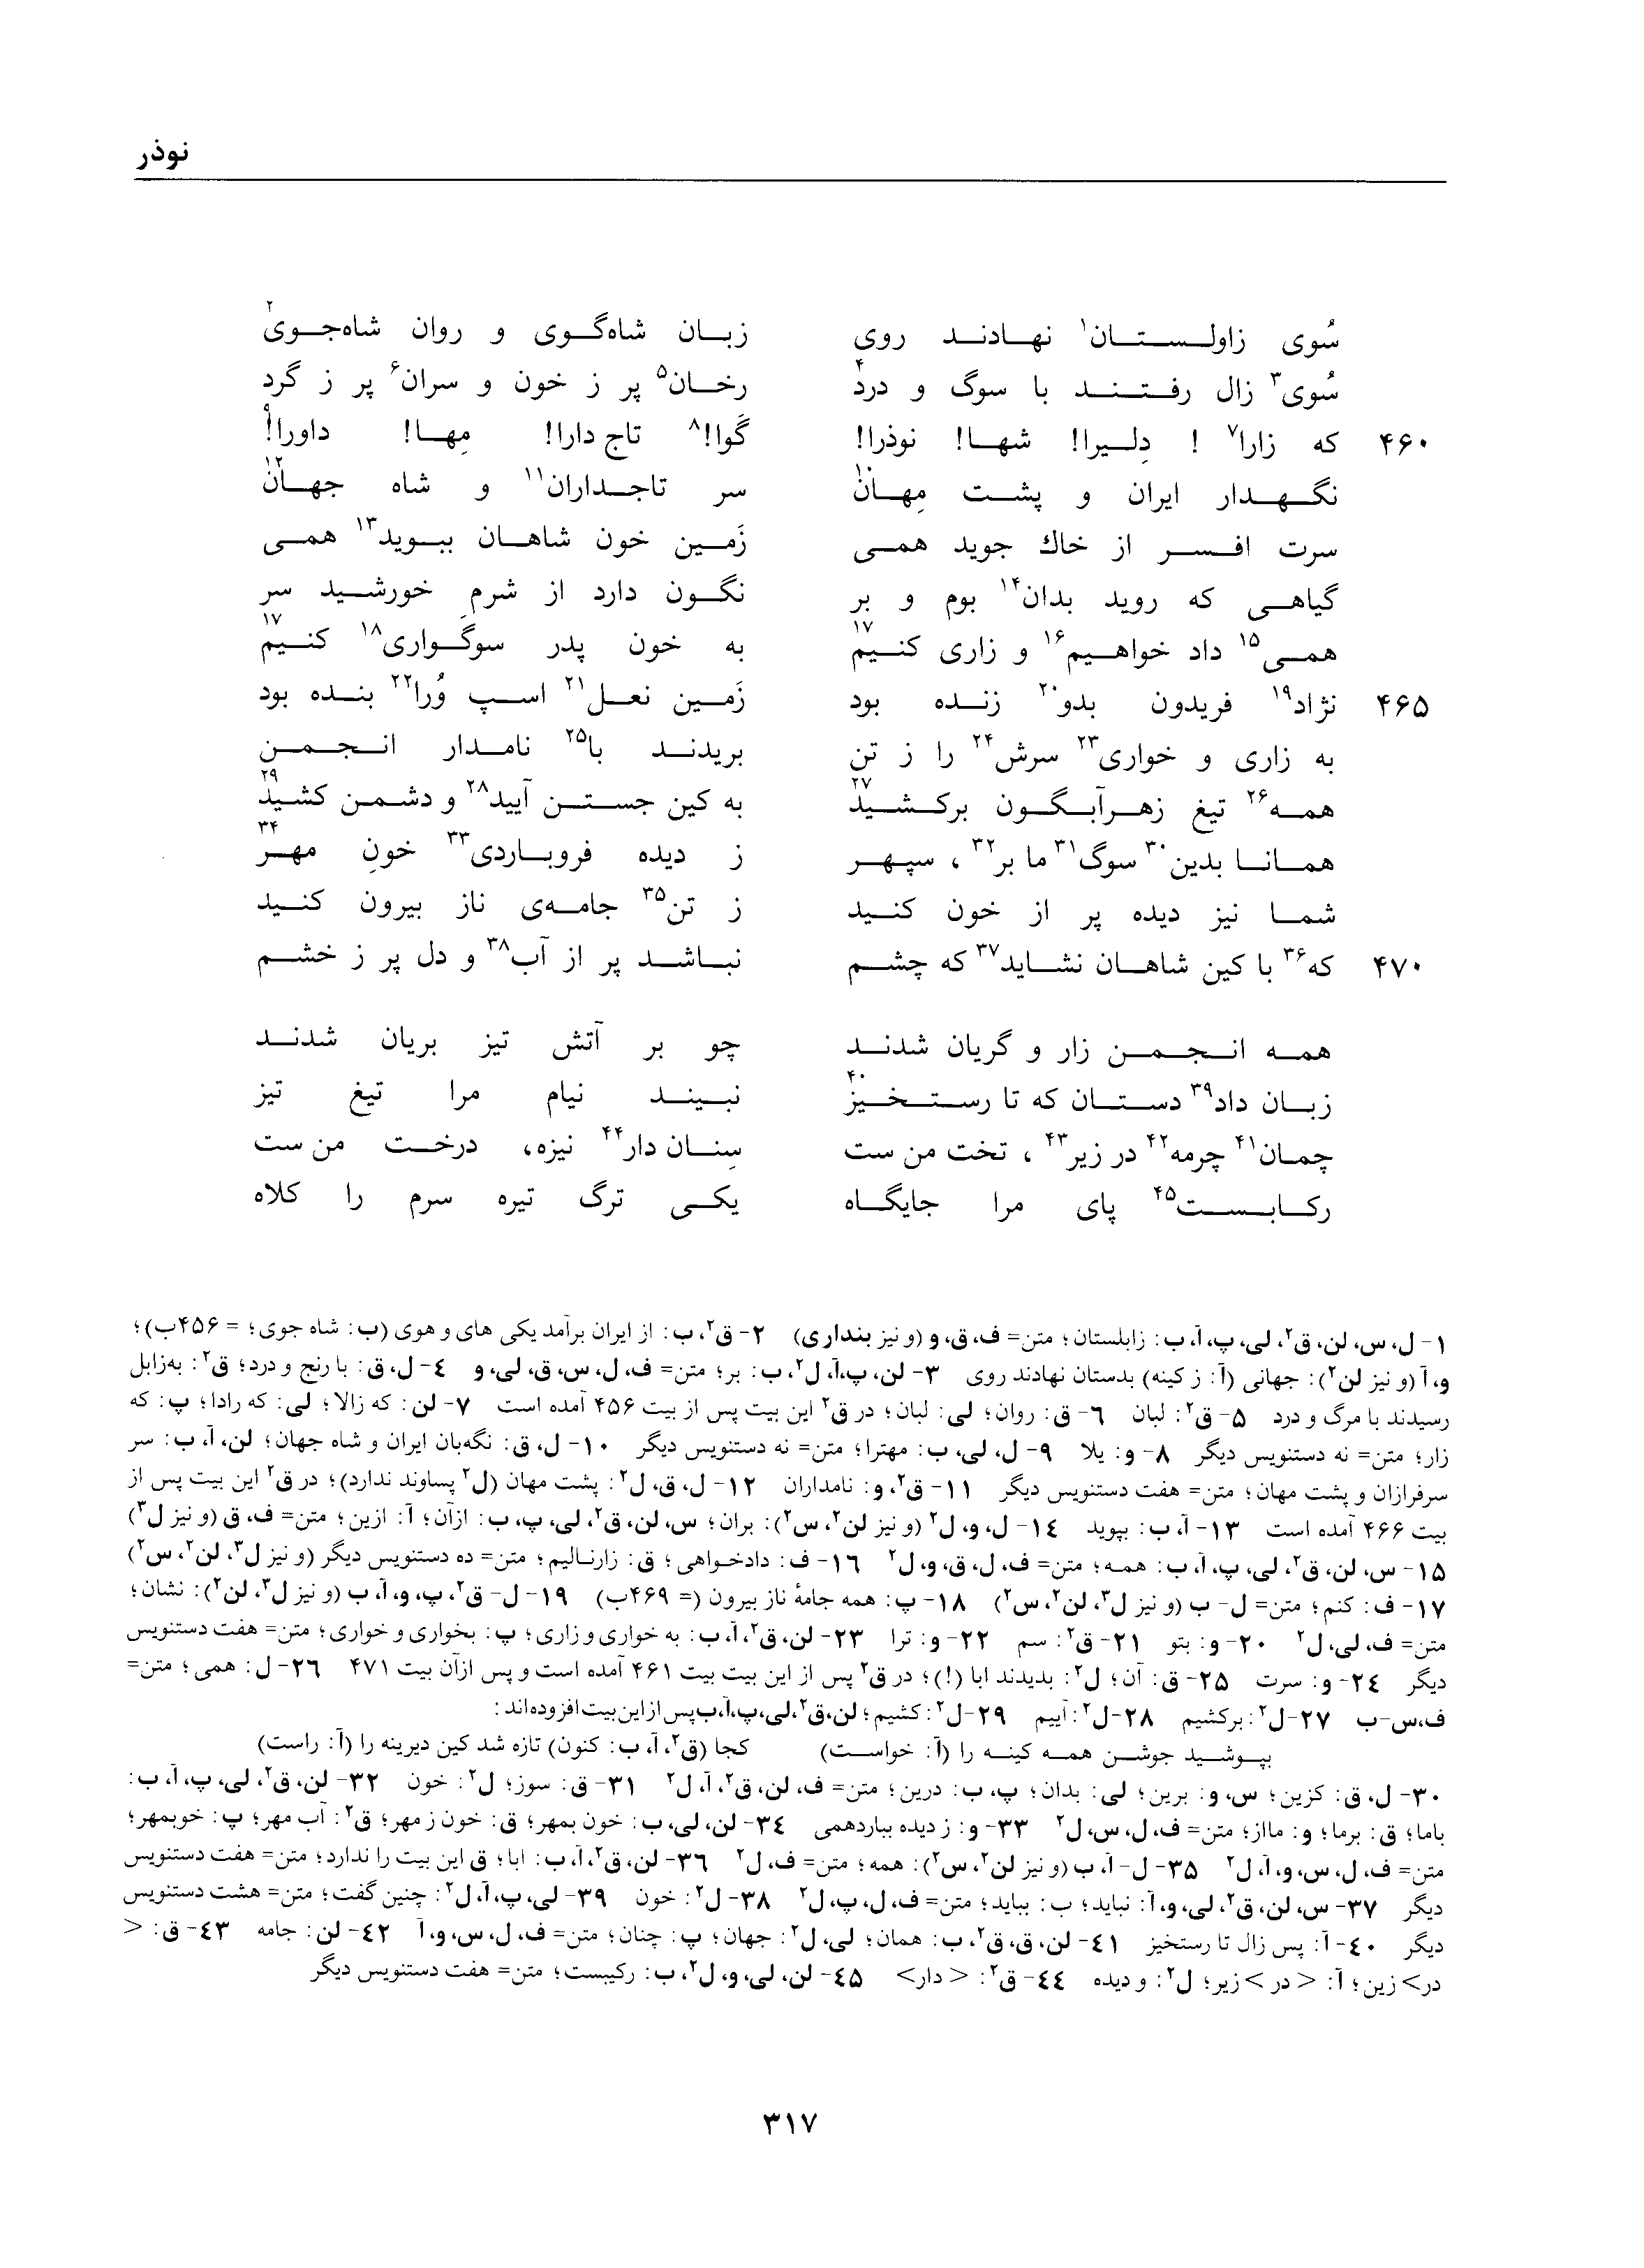 نوذر
سُوی زاولستان۱ نهادند روی زبان شاه‌گوی و روان شاه‌جوی۲
سُوی۳ زال رفتند با سوگ و درد۴ رخان۵ پر ز خون و سران۶ پر ز گرد
۴۶۰ که زارا۷ ! دِلیرا! شها! نوذرا! گَوا!۸ تاج دارا! مِها! داورا!۹
نگهدار ایران و پشت مِهان۱۰ سر تاجداران۱۱ و شاه جهان۱۲
سرت افسر از خاك جوید همی زَمین خون شاهان ببوید۱۳ همی
گیاهی که روید بدان۱۴ بوم و بر نگون دارد از شرمِ خورشید سر
همی۱۵ داد خواهیم۱۶ و زاری کنیم۱۷ به خون پدر سوگواری۱۸ کنیم۱۷
۴۶۵ نژاد۱۹ فریدون بدو۲۰ زنده بود زَمین نعل۲۱ اسپ وُرا۲۲ بنده بود
به زاری و خواری۲۳ سرش۲۴ را ز تن بریدند با۲۵ نامدار انجمن
همه۲۶ تیغ زهرآبگون برکشید۲۷ به کین جستن آیید۲۸ و دشمن کشید۲۹
همانا بدین۳۰ سوگ۳۱ ما بر۳۲ ، سپهر ز دیده فروباردی۳۳ خونِ مهر۳۴
شما نیز دیده پر از خون کنید ز تن۳۵ جامه‌ی ناز بیرون کنید
۴۷۰ که۳۶ با کین شاهان نشاید۳۷ که چشم نباشد پر از آب۳۸ و دل پر ز خشم
همه انجمن زار و گریان شدند چو بر آتش تیز بریان شدند
زبان داد۳۹ دستان که تا رستخیز۴۰ نبیند نیام مرا تیغ تیز
چمان۴۱ چرمه۴۲ در زیر۴۳ ، تخت من ست سِنان دار۴۴ نیزه، درخت من ست
رکابست۴۵ پای مرا جایگاه یکی ترگ تیره سرم را کلاه
۱- ل، س، لن، ق۲، لی، پ، آ، ب: زابلستان؛ متن= ف، ق، و (و نیز بنداری) ۲- ق۲، ب: از ایران برآمد یکی های و هوی (ب: شاه جوی؛ = ۴۵۶ب)؛
و، آ (و نیز لن۲): جهانی (آ: ز کینه) بدستان نهادند روی ۳- لن، پ، آ، ل۲، ب: بر؛ متن= ف، ل، س، ق، لی، و ۴- ل، ق: با رنج و درد؛ ق۲: به‌زابل
رسیدند با مرگ و درد ۵- ق۲: لبان ۶- ق: روان؛ لی: لبان؛ در ق۲ این بیت پس از بیت ۴۵۶ آمده است ۷- لن: که زالا؛ لی: که رادا؛ پ: که
زار؛ متن= نه دستنویس دیگر ۸- و: یلا ۹- ل، لی، ب: مهترا؛ متن= نه دستنویس دیگر ۱۰- ل، ق: نگه‌بان ایران و شاه جهان؛ لن، آ، ب: سر
سرفرازان و پشت مهان؛ متن= هفت دستنویس دیگر ۱۱- ق۲، و: نامداران ۱۲- ل، ق، ل۲: پشت مهان (ل۲ پساوند ندارد)؛ در ق۲ این بیت پس از
بیت ۴۶۶ آمده است ۱۳- آ، ب: بپوید ۱۴- ل، و، ل۲ (و نیز لن۲، س۲): بران؛ س، لن، ق۲، لی، پ، ب: ازآن؛ آ: ازین؛ متن= ف، ق (و نیز ل۳)
۱۵- س، لن، ق۲، لی، پ، آ، ب: همه؛ متن= ف، ل، ق، و، ل۲ ۱۶- ف: دادخواهی؛ ق: زارنالیم؛ متن= ده دستنویس دیگر (و نیز ل۳، لن۲، س۲)
۱۷- ف: کنم؛ متن= ل- ب (و نیز ل۳، لن۲، س۲) ۱۸- پ: همه جامهٔ ناز بیرون (= ۴۶۹ب) ۱۹- ل- ق۲، پ، و، آ، ب (و نیز ل۳، لن۲): نشان؛
متن= ف، لی، ل۲ ۲۰- و: بتو ۲۱- ق۲: سم ۲۲- و: ترا ۲۳- لن، ق۲، آ، ب: به خواری و زاری؛ پ: بخواری و خواری؛ متن= هفت دستنویس
دیگر ۲۴- و: سرت ۲۵- ق: آن؛ ل۲: بدیدند ابا (!)؛ در ق۲ پس از این بیت بیت ۴۶۱ آمده است و پس ازآن بیت ۴۷۱ ۲۶- ل: همی؛ متن=
ف، س-ب ۲۷- ل۲: برکشیم ۲۸- ل۲: آییم ۲۹- ل۲: کشیم؛ لن، ق۲، لی، پ، آ، ب پس از این بیت افزوده‌اند:
بپوشید جوشن همه کینه را (آ: خواست) کجا (ق۲، آ، ب: کنون) تازه شد کین دیرینه را (آ: راست)
۳۰- ل، ق: کزین؛ س، و: برین؛ لی: بدان؛ پ، ب: درین؛ متن= ف، لن، ق۲، آ، ل۲ ۳۱- ق: سوز؛ ل۲: خون ۳۲- لن، ق۲، لی، پ، آ، ب:
باما؛ ق: برما؛ و: مااز؛ متن= ف، ل، س، ل۲ ۳۳- و: ز دیده بباردهمی ۳۴- لن، لی، ب: خون بمهر؛ ق: خون ز مهر؛ ق۲: آب مهر؛ پ: خوبمهر؛
متن= ف، ل، س، و، آ، ل۲ ۳۵- ل- آ، ب (و نیز لن۲، س۲): همه؛ متن= ف، ل۲ ۳۶- لن، ق۲، آ، ب: ابا؛ ق این بیت را ندارد؛ متن= هفت دستنویس
دیگر ۳۷- س، لن، ق۲، لی، و، آ: نباید؛ ب: بباید؛ متن= ف، ل، پ، ل۲ ۳۸- ل۲: خون ۳۹- لی، پ، آ، ل۲: چنین گفت؛ متن= هشت دستنویس
دیگر ۴۰- آ: پس زال تا رستخیز ۴۱- لن، ق، ق۲، ب: همان؛ لی، ل۲: جهان؛ پ: چنان؛ متن= ف، ل، س، و، آ ۴۲- لن: جامه ۴۳- ق: <
در> زین؛ آ: < در >زیر؛ ل۲: و دیده ۴۴- ق۲: < دار> ۴۵- لن، لی، و، ل۲، ب: رکیبست؛ متن= هفت دستنویس دیگر
۳۱۷